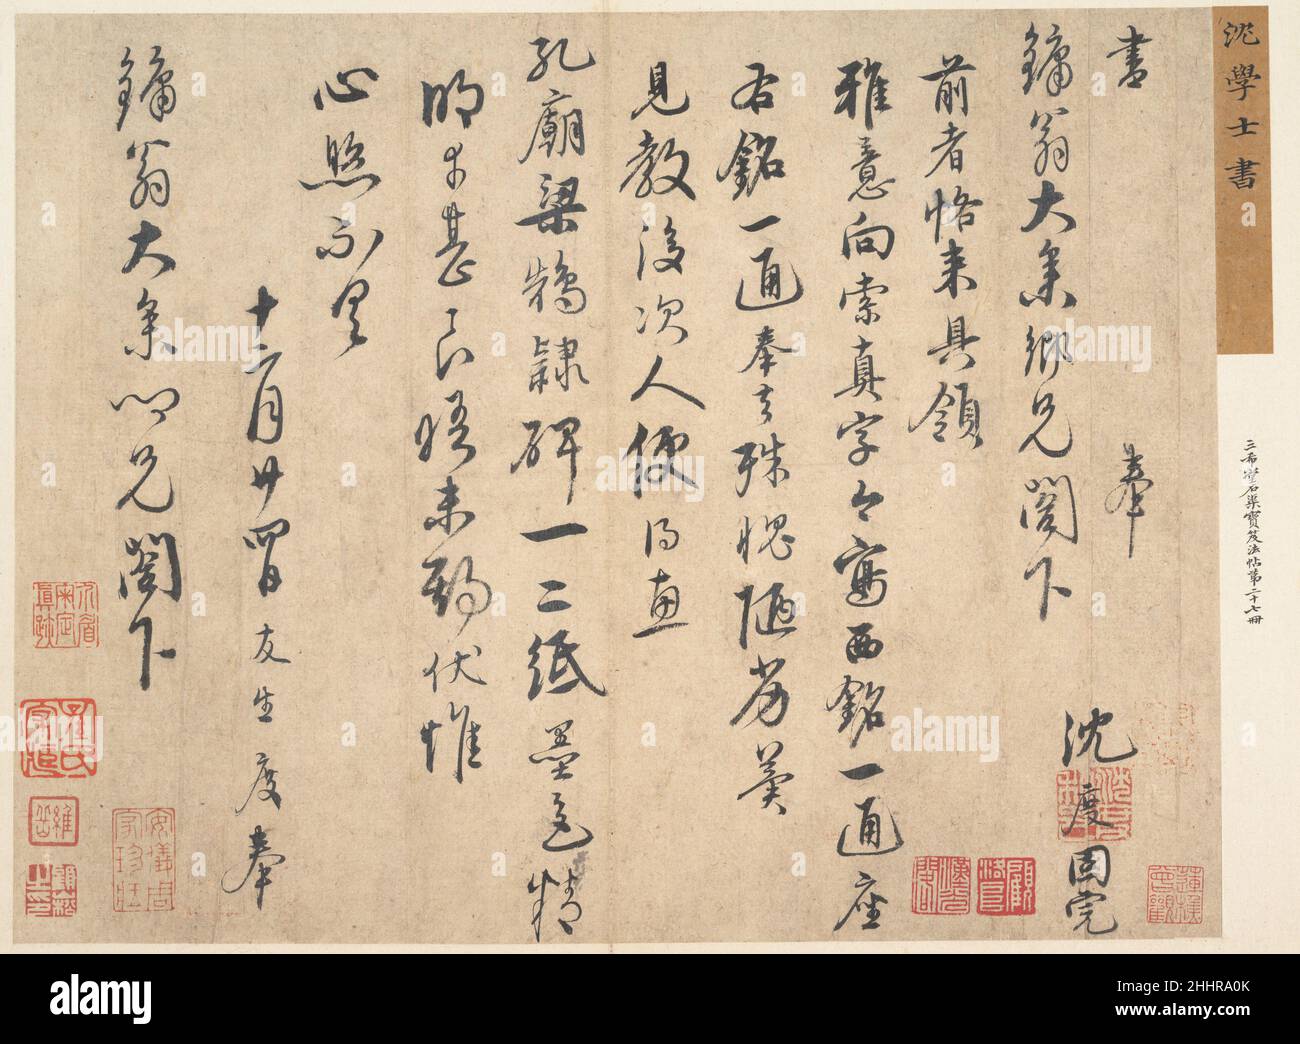 沈學士書
三希堂石渠寶笈法帖第二十七冊
書 奉
鏞翁大參鄉兄閣下
沈度固完
前者恪來具領
雅意向索真字今寫西銘一通座
右銘一通奉去殊愧陋劣冀
見教後次人便得惠
孔廟梁鵠隸碑一二紙墨色精
明者甚良晤未期伏惟
心照不具
十二月廿四日友生度奉
鏞翁大參鄉兄閣下
alamy
Image ID: 2HHRA0K
www.alamy.com